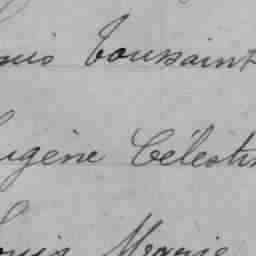 ouis Toussaint
ugène Célesti
ouis Marie